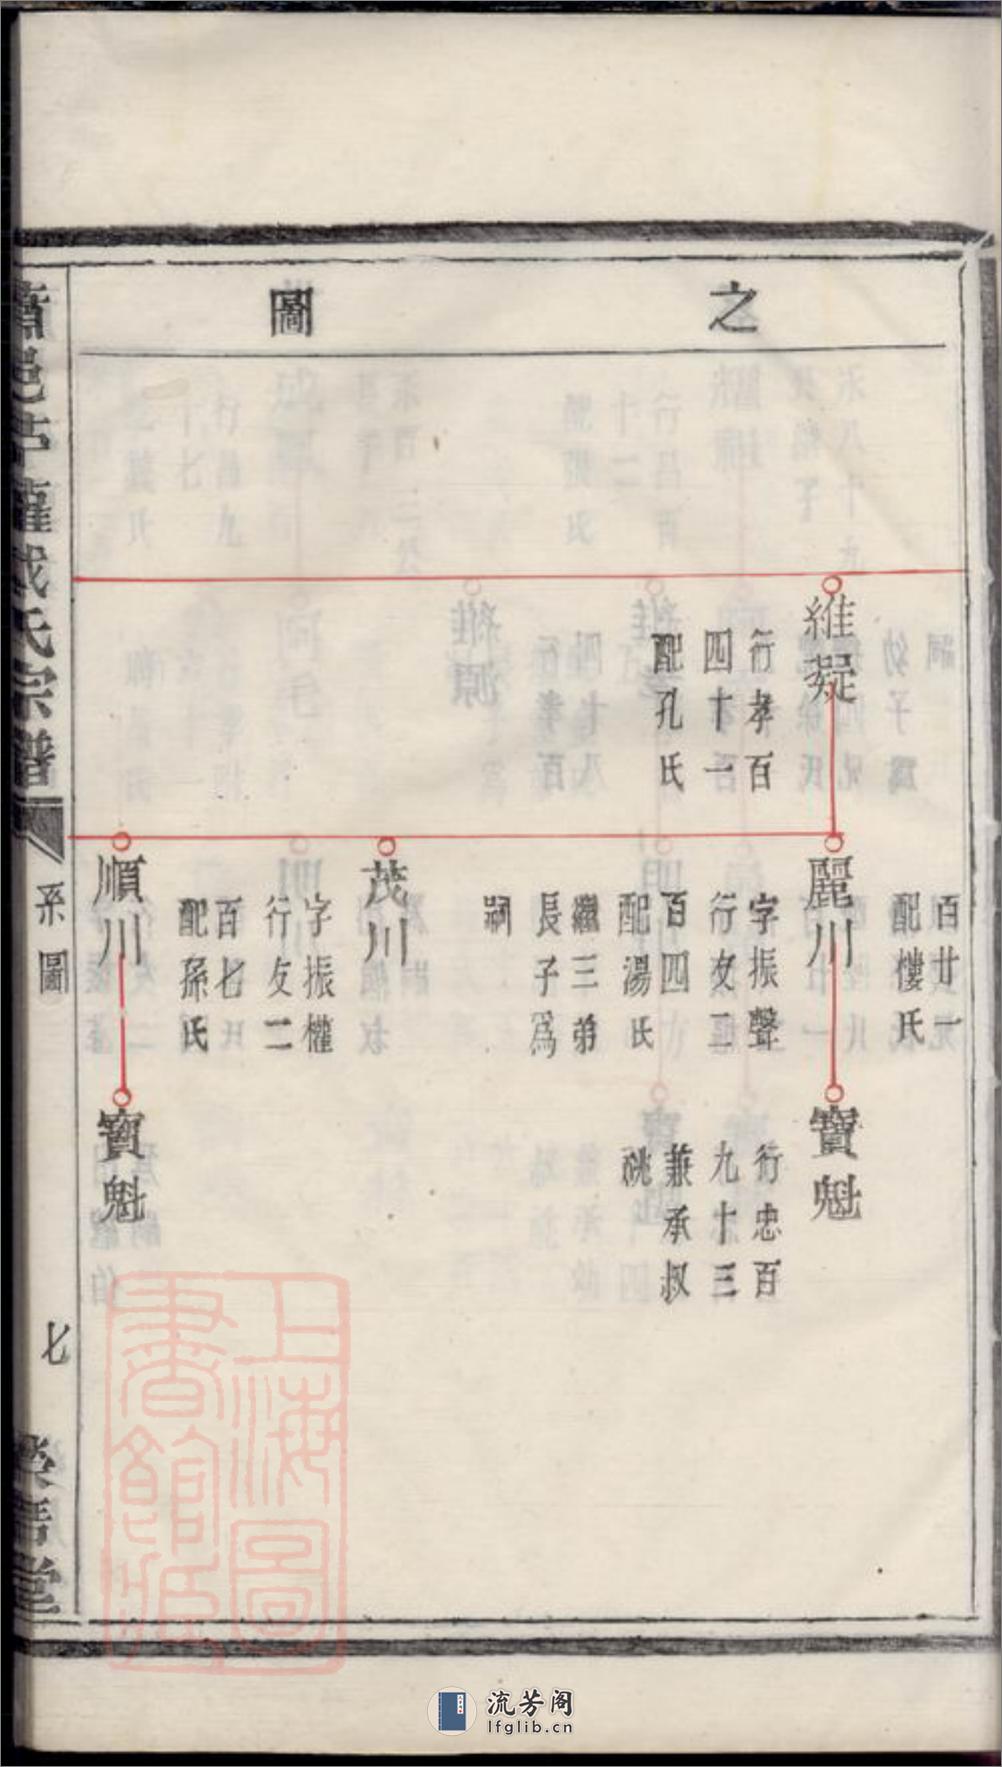 之圖
維凝
行孝百
四十一
配孔氏
百廿一
配樓氏
麗川
字振聲
行友二
百四四
配湯氏
繼三弟
長子為
嗣
茂川
字振權
行友二
百七
配孫氏
順川
寶魁
行忠百
九十三
兼承叔
祧
寶魁
氏宗譜
系圖
七
堂
上海圖書館藏
流芳阁
lfglib.cn